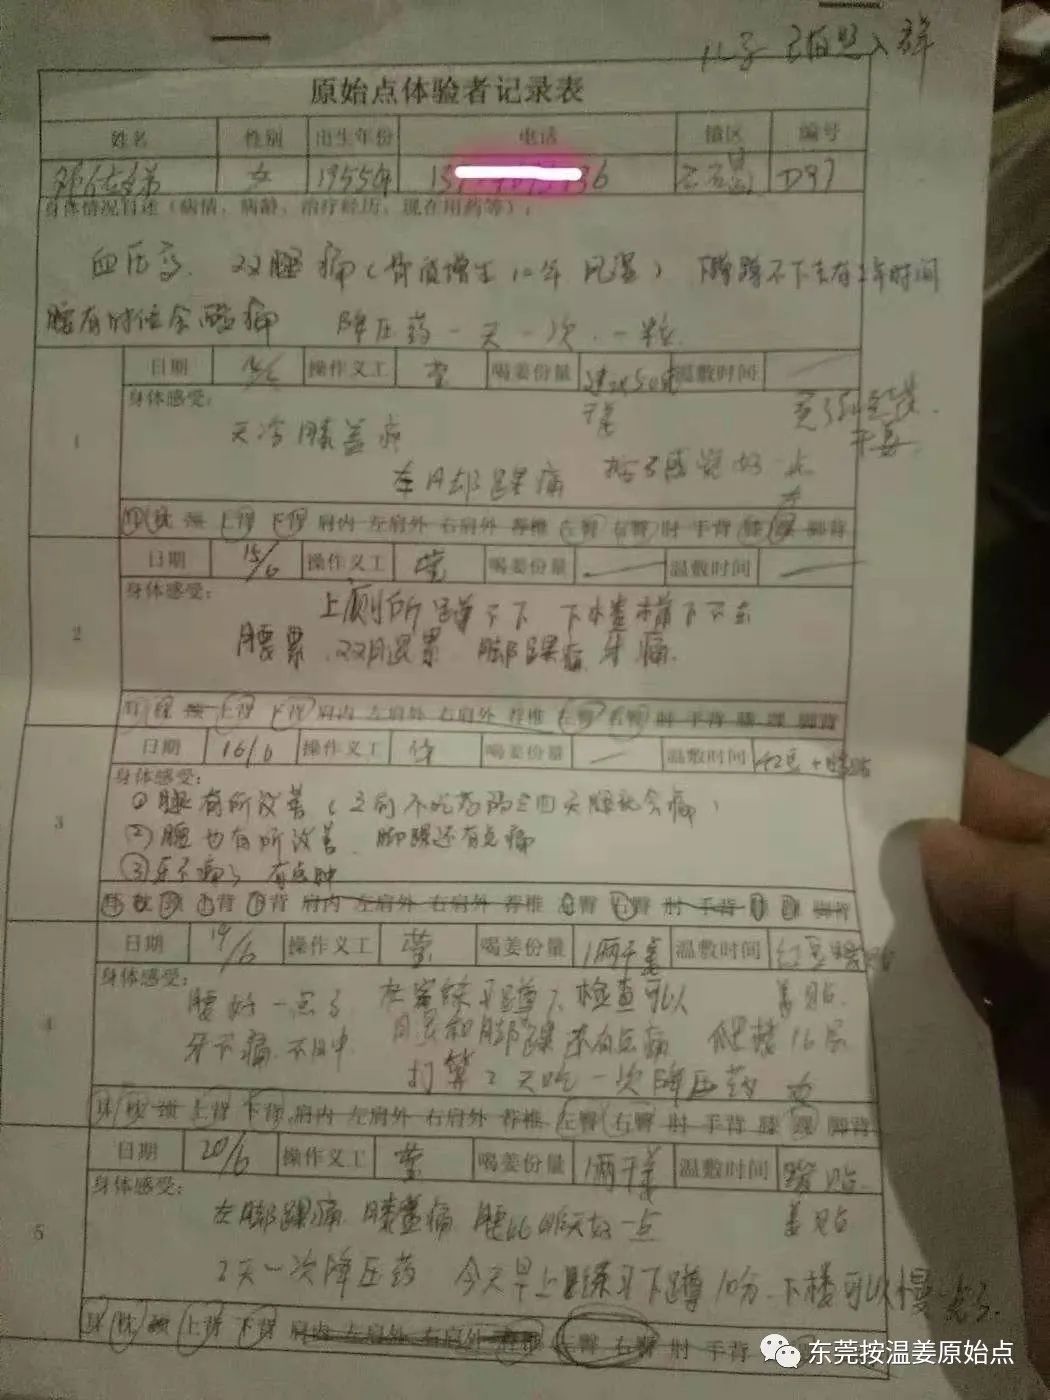 儿子 已拍照入群
原始点体验者记录表
姓名 性别 出生年份 电话 镇区 编号
女 1955年 D97
身体情况自述（病情，病龄，治疗经历，现在用药等）：
血压高、双腿痛（骨质增生10年 风湿）、下蹲蹲不下去有2年时间
腰有时候会酸痛 降压药一天一次、一粒
日期 操作义工 莹 喝姜份量 温敷时间
1 身体感受：
天冷膝盖疼
左月却踝痛 感觉好一点
耳 枕 颈 上背 下背 肩内 左肩外 右肩外 荐椎 左臀 右臀 肘 手背 膝 踝 脚背
日期 15/6 操作义工 莹 喝姜份量 温敷时间
2 身体感受：
上厕所蹲不下 下楼
腰累、双腿累、脚踝痛、牙痛
耳 枕 颈 上背 下背 肩内 左肩外 右肩外 荐椎 左臀 右臀 肘 手背 膝 踝 脚背
日期 16/6 操作义工 喝姜份量 温敷时间
3 身体感受：
①腿有所改善（之前不吃药隔三四天腿就会痛）
②腰也有所改善、脚踝还有点痛
③牙不痛了 有点肿
耳 枕 颈 上背 下背 肩内 左肩外 右肩外 荐椎 左臀 右臀 肘 手背 膝 踝 脚背
日期 19/6 操作义工 莹 喝姜份量 1两干姜 温敷时间
4 身体感受：
腰好一点了 在家练习蹲下 检查可以 姜贴
牙不痛、不肿 脚踝还有点痛 爬楼16层
打算2天吃一次降压药
耳 枕 颈 上背 下背 肩内 左肩外 右肩外 荐椎 左臀 右臀 肘 手背 膝 踝 脚背
日期 20/6 操作义工 莹 喝姜份量 1两干姜 温敷时间
5 身体感受：
左脚踝痛 膝盖痛 腰比昨天好一点 姜贴
2天一次降压药 今天早上练习下蹲10分、下楼可以慢走了
耳 枕 颈 上背 下背 肩内 左肩外 右肩外 荐椎 左臀 右臀 肘 手背
东莞按温姜原始点